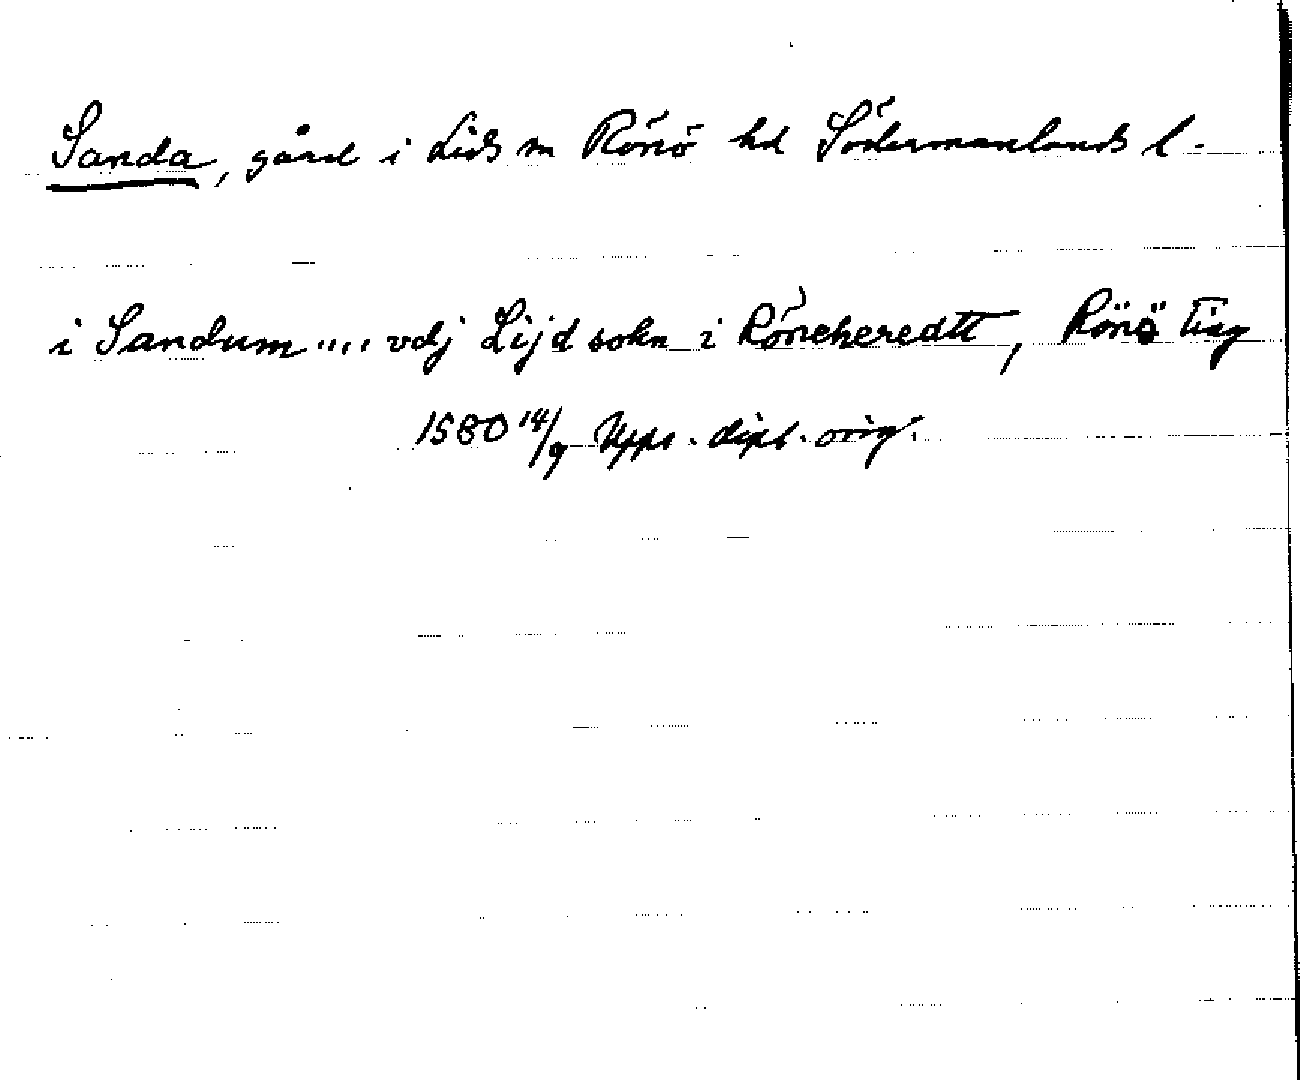 Sanda, gård i Lids sn Rönö hd Södermanlands l.
i Sandum .... vdj Lijd sokn i Röneheredtt, Rönö ting
1580 14/9 Upps. dipl. orig.